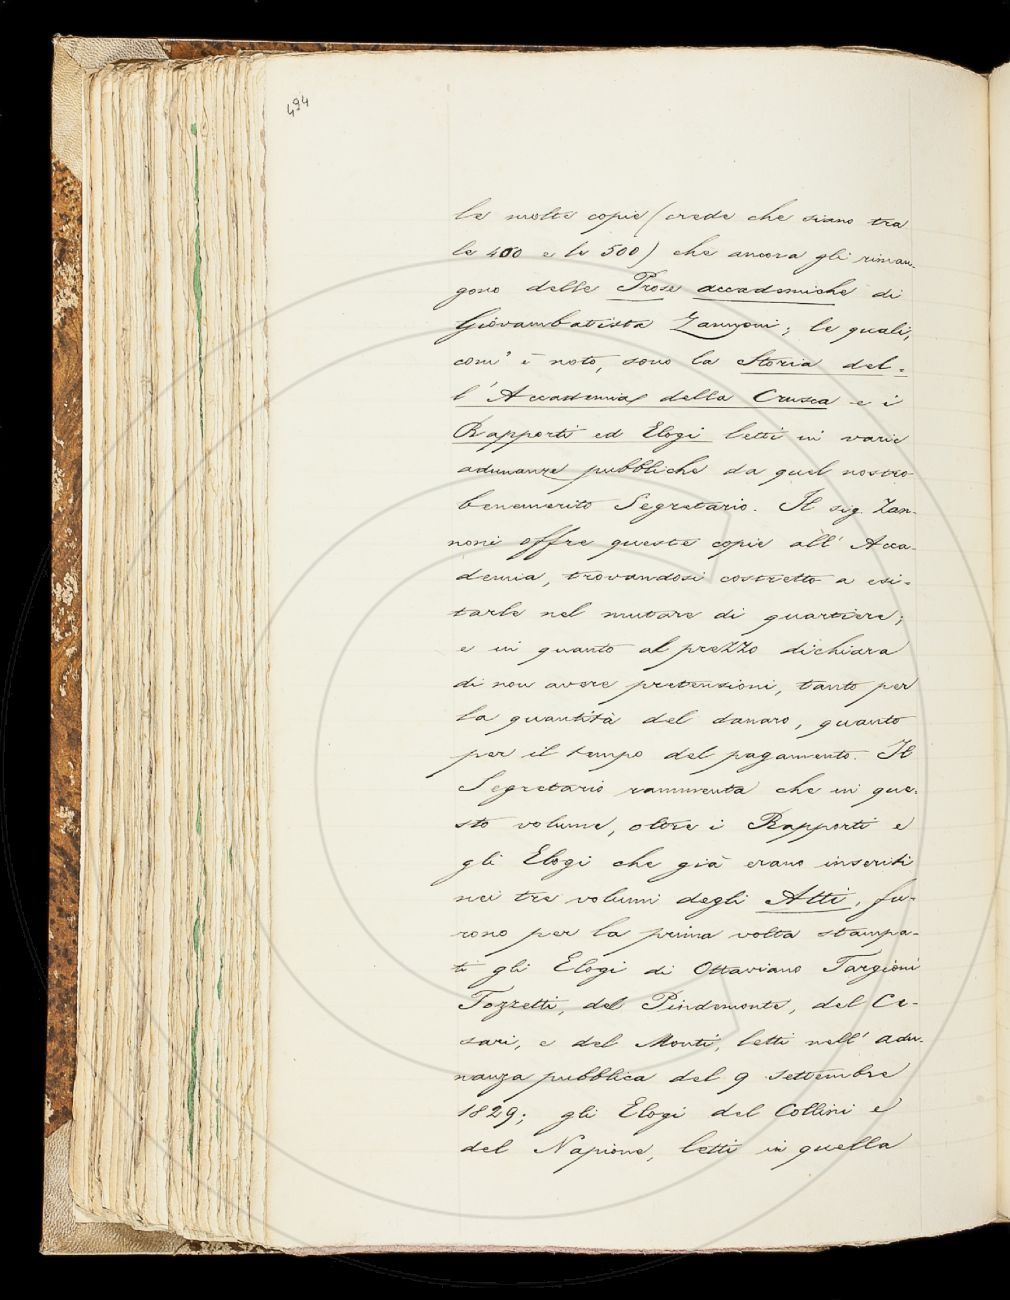 494
le molte copie (crede che siano tra
le 400 e le 500) che ancora gli riman-
gono delle Prose accademiche di
Giovambatista Zannoni; le quali,
com' è noto, sono la Storia del-
l'Accademia della Crusca e i
Rapporti ed Elogi letti in varie
adunanze pubbliche da quel nostro
benemerito Segretario. Il sig. Zan-
noni offre queste copie all'Acca-
demia, trovandosi costretto a esi-
tarle nel mutare di quartiere;
e in quanto al prezzo dichiara
di non avere pretensioni, tanto per
la quantità del danaro, quanto
per il tempo del pagamento. Il
Segretario rammenta che in que-
sto volume, oltre i Rapporti e
gli Elogi che già erano inseriti
nei tre volumi degli Atti, fu-
rono per la prima volta stampa-
ti gli Elogi di Ottaviano Targioni
Tozzetti, del Pindemonte, del Ce-
sari, e del Monti, letti nell'adu-
nanza pubblica del 9 settembre
1829; gli Elogi del Collini e
del Napione, letti in quella